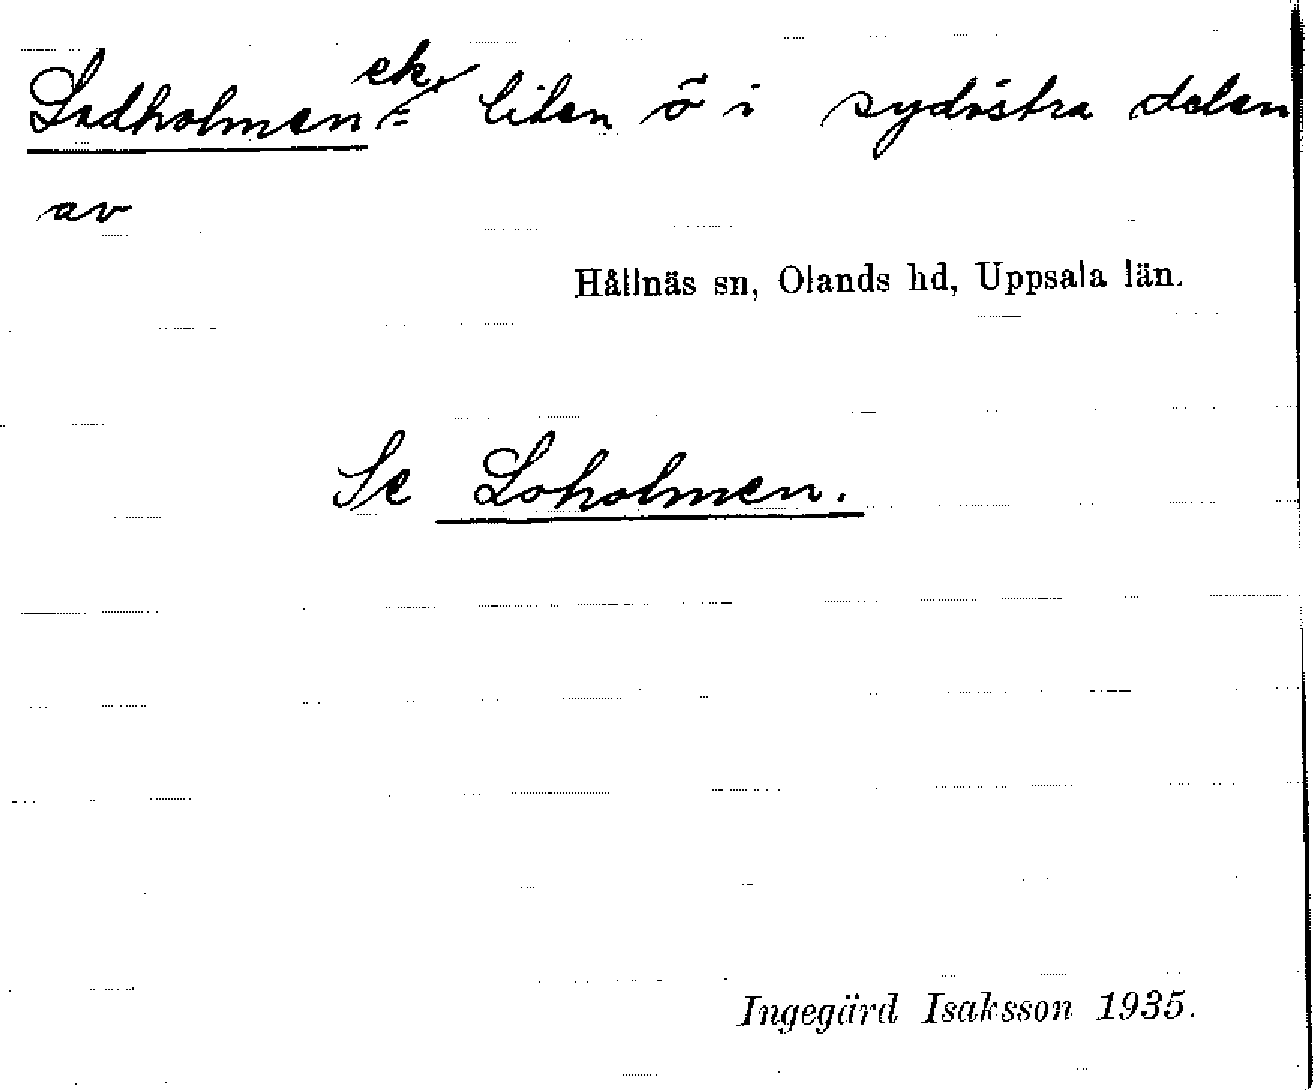 Ladholmen ek. = liten ö i sydöstra delen
av
Hållnäs sn, Olands hd, Uppsala län.
Se Loholmen.
Ingegärd Isaksson 1935.